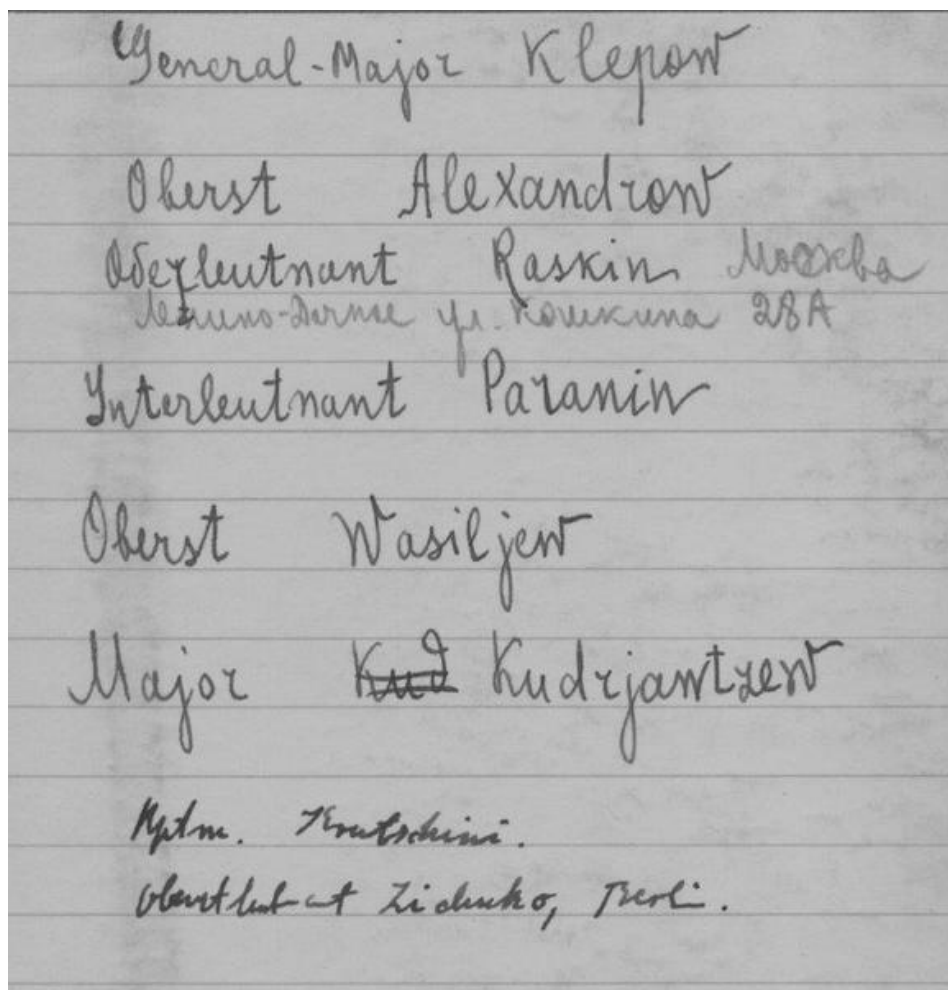 General-Major Klepow
Oberst Alexandrow
Oberleutnant Raskin Москва
Ленино-Дачное ул. Кошкина 28А
Interleutnant Paranin
Oberst Wasiljew
Major Kud Kudrjawtzew
Hptm. Krutschini.
Oberstleutnant Lidenko, Berlin.